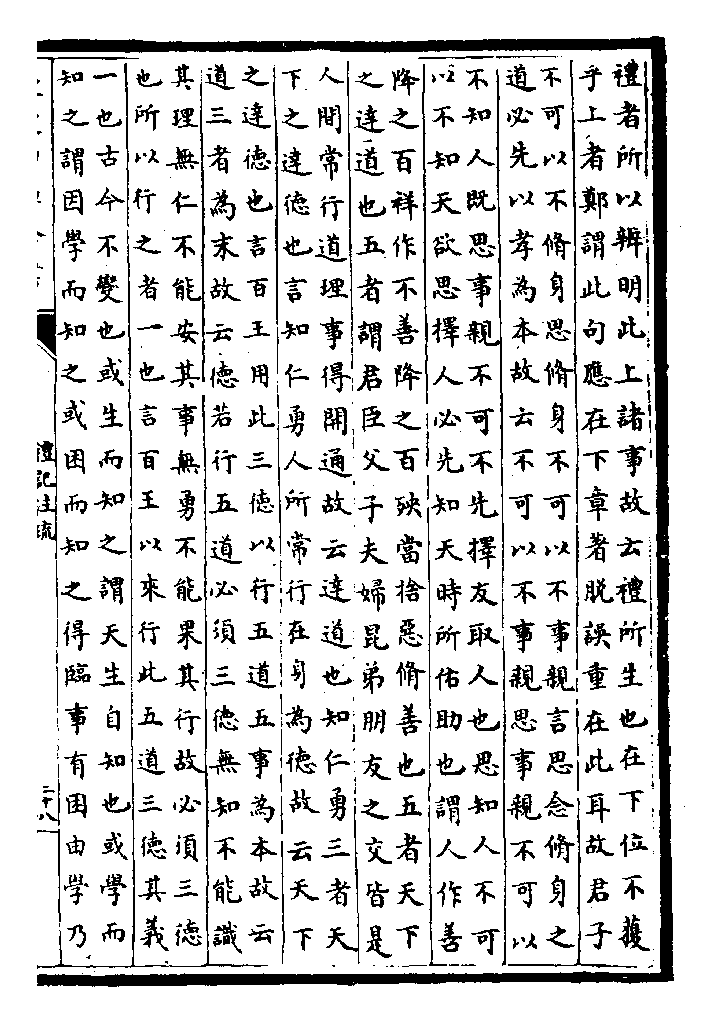 禮者所以辨明此上諸事故云禮所生也在下位不獲
乎上者鄭謂此句應在下章著脫誤重在此耳故君子
不可以不脩身思脩身不可以不事親言思念脩身之
道必先以孝為本故云不可以不事親思事親不可以
不知人既思事親不可不先擇友取人也思知人不可
以不知天欲思擇人必先知天時所佑助也謂人作善
降之百祥作不善降之百殃當捨惡脩善也五者天下
之達道也五者謂君臣父子夫婦昆弟朋友之交皆是
人間常行道理事得開通故云達道也知仁勇三者天
下之達德也言知仁勇人所常行在身為德故云天下
之達德也言百王用此三德以行五道五事為本故云
道三者為末故云德若行五道必須三德無知不能識
其理無仁不能安其事無勇不能果其行故必須三德
也所以行之者一也言百王以來行此五道三德其義
一也古今不變也或生而知之謂天生自知也或學而
知之謂因學而知之或困而知之得臨事有困由學乃
禮記註疏
二十八